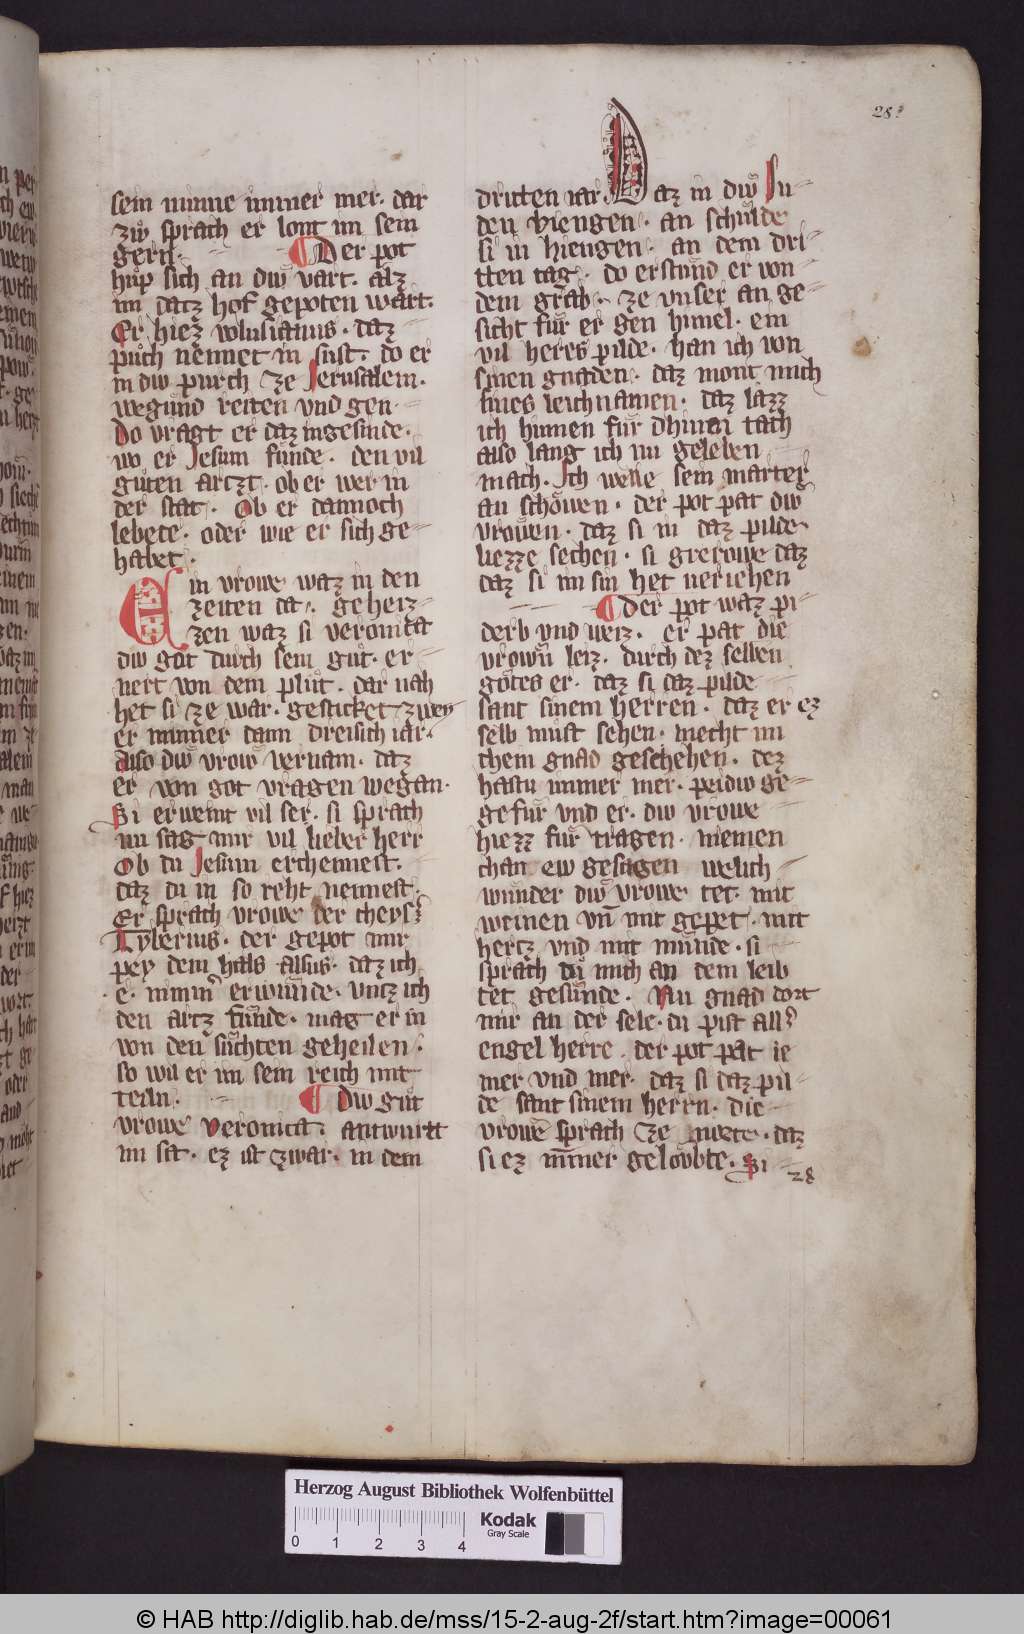 28
sein minne immer mer. dar
zuͦ sprach er lont im sein
gern. Der pot
huͤp sich an diwͤ vart. alz
im datz hof gepoten wart.
Er hiez wlusianus. daz
puch nennet in sust. do er
in diw purch ze Jerusalem.
wegund reiten vnd gen.
Do vragt er daz ingesinde.
wo er Jesum funde. den vil
guͦten artzt. ob er wer in
der stat. Ob er dannoch
lebete. oder wie er sich ge-
habet.
Ein vrowe waz in den
zeiten da. geheiz-
zen waz si veronica
diw got durch sein guͤt. er-
nert von dem pluͦt. dar nah
het si ze war. gesucket zwey
er minner dann dreisich iar.
also diw vrow vernam. daz
er von got vragen wegan.
Si erweint vil ser. si sprach
nu sag mir vil lieber herr
Ob du Jesum erchennest.
daz du in so reht nennest.
Er sprach vrowe der cheyser
Tyberius. der gepot mir
pey dem hals alsus. daz ich
e. nimmer erwunde. vntz ich
den artz funde. mag er in
von den suͤchten geheilen.
so wil er im sein reich mit
teiln. Diw guͦt
vrowe veronica. antwurtt
im sa. ez ist zwar. in dem
dritten iar. Daz in diwͤ Ju-
den viengen. an schulde
si in hiengen. an dem dri-
tten tag. do erstund er von
dem grab. ze vnser an ge-
sicht fuͤr er gen himel. ein
vil heres pilde. han ich von
sinen gnaden. daz mont mich
sines leichnamen. daz lazz
ich nimen fuͤr dhinen tach
also lang ich nu geleben
mach. Ich welle sein marter
an schoͮwen. der pot pat diwͤ
vroͮwen. daz si in daz pilde
liezze sechen. si gerowe daz
daz si im sin het veriehen
Der pot waz pi-
derb vnd weiz. er pat die
vrown leiz. durch dez selben
gotes er. daz si daz pilde
sant sinem herren. daz er ez
selb muͤst sehen. mecht im
chein gnad geschehen. dez
hastu immer mer. peidiw ge-
gefuͤr vnd er. diw vrowe
hiezz fuͤr tragen. niemen
chan ew gesagen welich
wunder diwͤ vrowe tet. mit
weinen vn̄ mit gepet. mit
hertz vnd mit munde. si
sprach du mich an dem leib
tet gesunde. Nu gnad dort
mir an der sele. du pist aller
engel herre. der pot pat ie
mer vnd mer. daz si daz pil-
de sant sinem herrn. die
vrowe sprach ze muͤte. daz
si ez nimmer geloubte. Si
28
Herzog August Bibliothek Wolfenbüttel
Kodak
Gray Scale
0 1 2 3 4
© HAB http://diglib.hab.de/mss/15-2-aug-2f/start.htm?image=00061